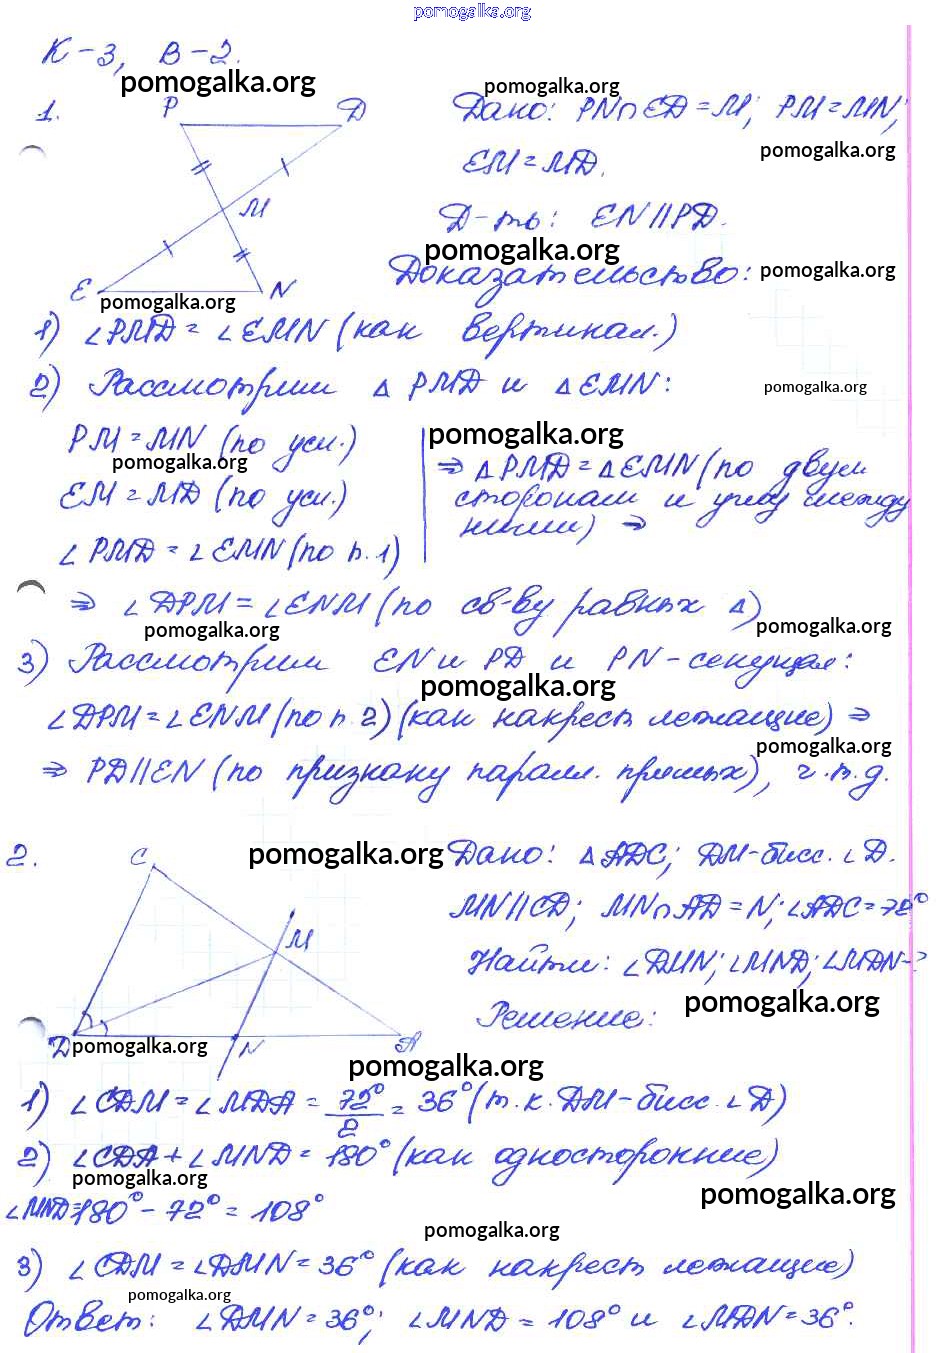 pomogalka.org
К-3, В-2.
pomogalka.org
pomogalka.org
1.
P
D
Дано: PN∩ED=M; PM=MN;
pomogalka.org
EM=MD.
M
Д-ть: EN||PD.
pomogalka.org
E
N
Доказательство:
pomogalka.org
pomogalka.org
1) ∠PMD=∠EMN (как вертикал.)
2) Рассмотрим △PMD и △EMN:
pomogalka.org
PM=MN (по усл.)
pomogalka.org
pomogalka.org
⇒ △PMD=△EMN (по двум
EM=MD (по усл.)
сторонам и углу между
ними) ⇒
∠PMD=∠EMN (по п.1)
⇒ ∠DPM=∠ENM (по св-ву равных △)
pomogalka.org
pomogalka.org
3) Рассмотрим EN и PD и PN-секущая:
pomogalka.org
∠DPM=∠ENM (по п.2) (как накрест лежащие) ⇒
pomogalka.org
⇒ PD||EN (по признаку паралл. прямых), ч.т.д.
2.
C
pomogalka.org
Дано: △ADC; DM-бисс. ∠D.
MN||CD; MN∩AD=N; ∠ADC=72°
M
Найти: ∠DMN; ∠MND; ∠MDN-?
pomogalka.org
Решение:
D
pomogalka.org
N
A
pomogalka.org
1) ∠CDM=∠MDA=72°/2=36° (т.к. DM-бисс. ∠D)
2) ∠CDA+∠MND=180° (как односторонние)
pomogalka.org
pomogalka.org
∠MND=180°-72°=108°
pomogalka.org
3) ∠CDM=∠DMN=36° (как накрест лежащие)
pomogalka.org
Ответ: ∠DMN=36°; ∠MND=108° и ∠MDN=36°.